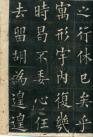 之行休已矣乎
寓形宇內復幾
時曷不委心任
去留胡為遑遑